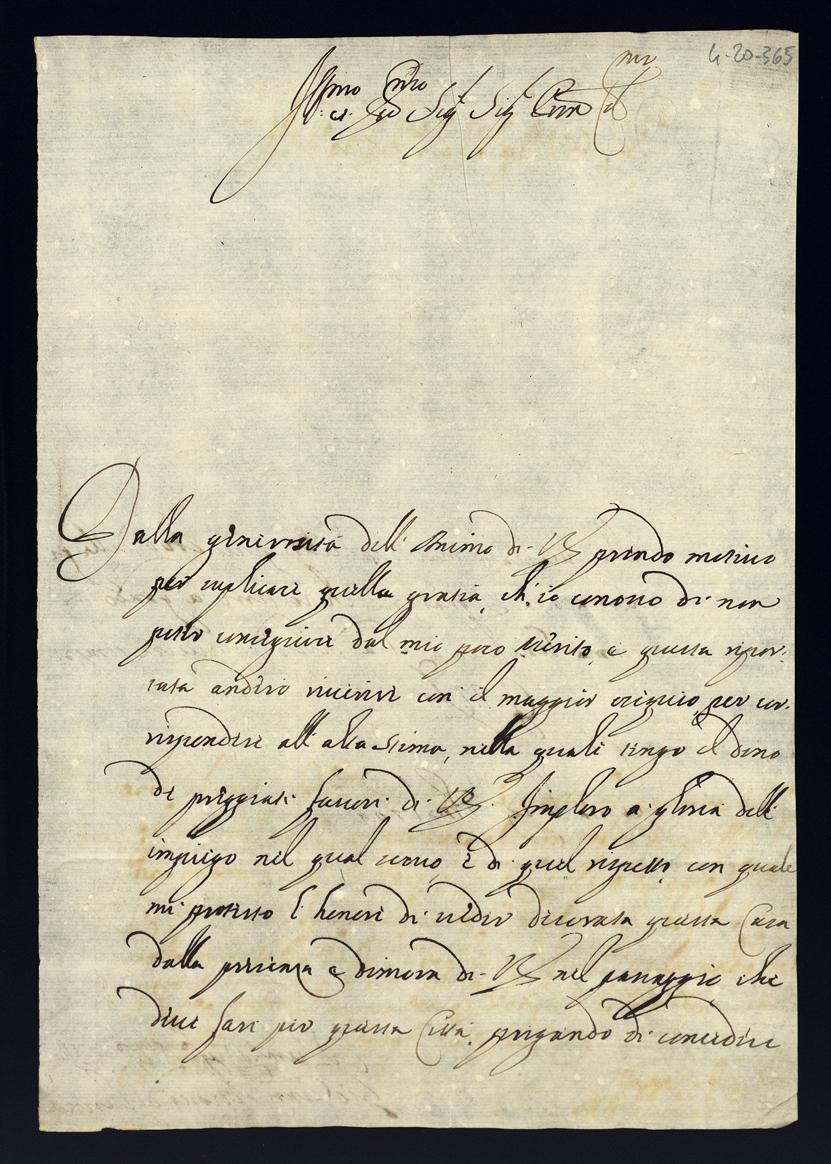 4-20-365
Ill.mo et Sig.r Sig.r
Dalla generosità dell' Animo di V.S. prendo motivo
per suplicare quella gratia, ch'io conosco di non
poter conseguire dal mio poco merito, e questa ripor-
tata andrò con il maggior per cor-
rispondere all' alta stima, nella quale tengo il dono
di preggiati favori di V.S. Imploro a gloria dell'
impiego nel qual sono, e di quel rispetto con quale
mi protesto l'honore di veder decorata questa Casa
dalla presenza e dimora di V.S. nel passaggio che
deve fare per questa Città, pregando di concedere